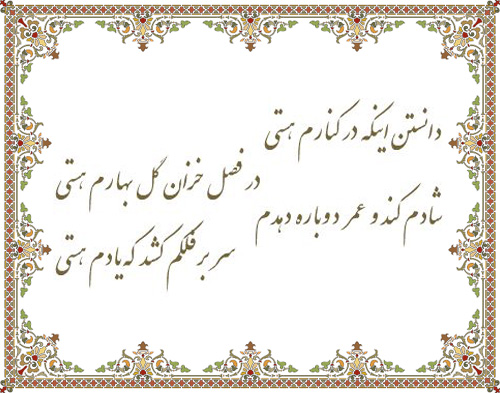 دانستن اینکه در کنارم هستی
در فصل خزان گل بهارم هستی
شادم کند و عمر دوباره دهدم
سر بر فلکم کشد که یادم هستی